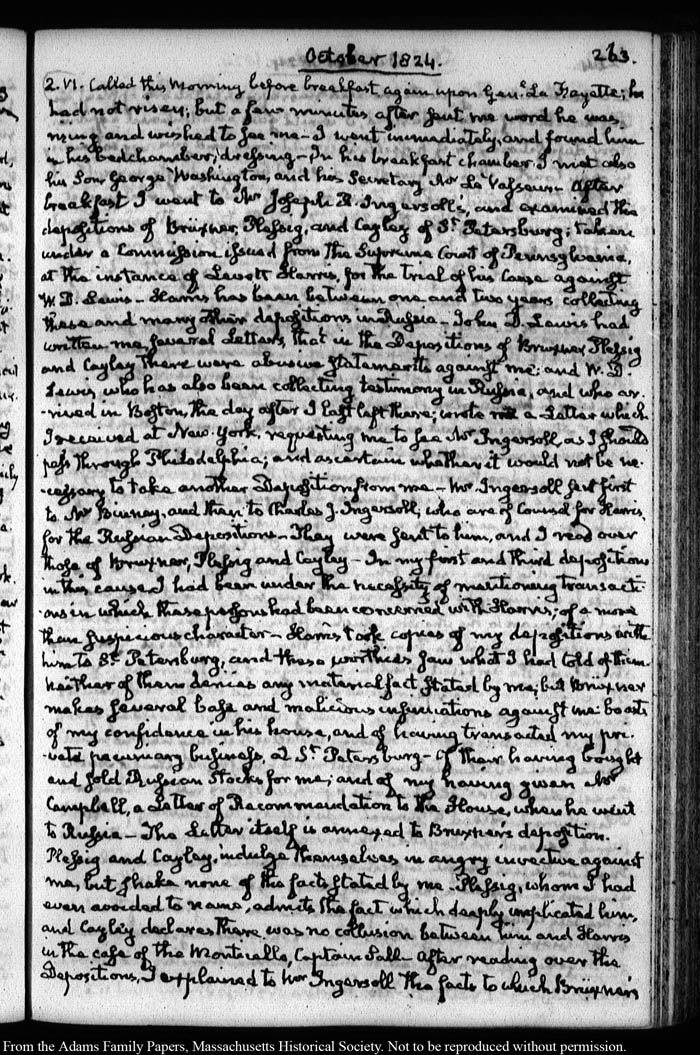 October 1824.
263.
2. VI. Called this Morning before breakfast again upon Genl. La Fayette; he
had not risen; but a few minutes after sent me word he was
rising and wished to see me - I went immediately, and found him
in his bedchamber, dressing - In his breakfast chamber I met also
his Son, George Washington, and his Secretary Mr La Vasseur. After
breakfast I went to Mr Joseph R. Ingersoll's, and examined the
depositions of Brüxner, Plessig, and Cayley of St. Petersburg; taken
under a Commission issued from the Supreme Court of Pennsylvania,
at the instance of Levett Harris, for the trial of his Cause against
W. D. Lewis - Harris has been between one and two years collecting
these and many other depositions in Russia - John D. Lewis had
written me several Letters, that in the Depositions of Brüxner Plessig
and Cayley there were abusive statements against me: and W. D.
Lewis, who has also been collecting testimony in Russia, and who ar-
-rived in Boston, the day after I last left there; wrote me a Letter which
I received at New-York, requesting me to see Mr Ingersoll, as I should
pass through Philadelphia; and ascertain whether it would not be ne-
-cessary to take another Deposition from me - Mr Ingersoll sent first
to Mr Binney, and then to Charles J. Ingersoll, who are of Counsel for Harris
for the Russian Depositions - They were sent to him, and I read over
those of Brüxner, Plessig and Cayley - In my first and third depositions
in this cause I had been under the necessity of mentioning transacti-
ons in which these persons had been concerned with Harris; of a more
than suspicious character - Harris took copies of my depositions with
him to St. Petersburg, and these worthies saw what I had told of them.
Neither of them denies any material fact stated by me; but Brüxner
makes several base and malicious insinuations against me: boasts
of my confidence in his house, and of having transacted my pri-
vate pecuniary business, at St. Petersburg - of their having bought
and sold Russian Stocks for me; and of my having given Mr
Campbell, a Letter of Recommendation to the House, when he went
to Russia - The Letter itself is annexed to Brüxner's deposition.
Plessig and Cayley, indulge themselves in angry invective against
me, but shake none of the facts stated by me - Plessig, whom I had
even avoided to name, admits the fact which deeply implicated him,
and Cayley declares there was no collusion between him and Harris
in the case of the Monticello, Captain Hall - After reading over the
Depositions, I explained to Mr Ingersoll the facts to which Brüxner's
From the Adams Family Papers, Massachusetts Historical Society. Not to be reproduced without permission.